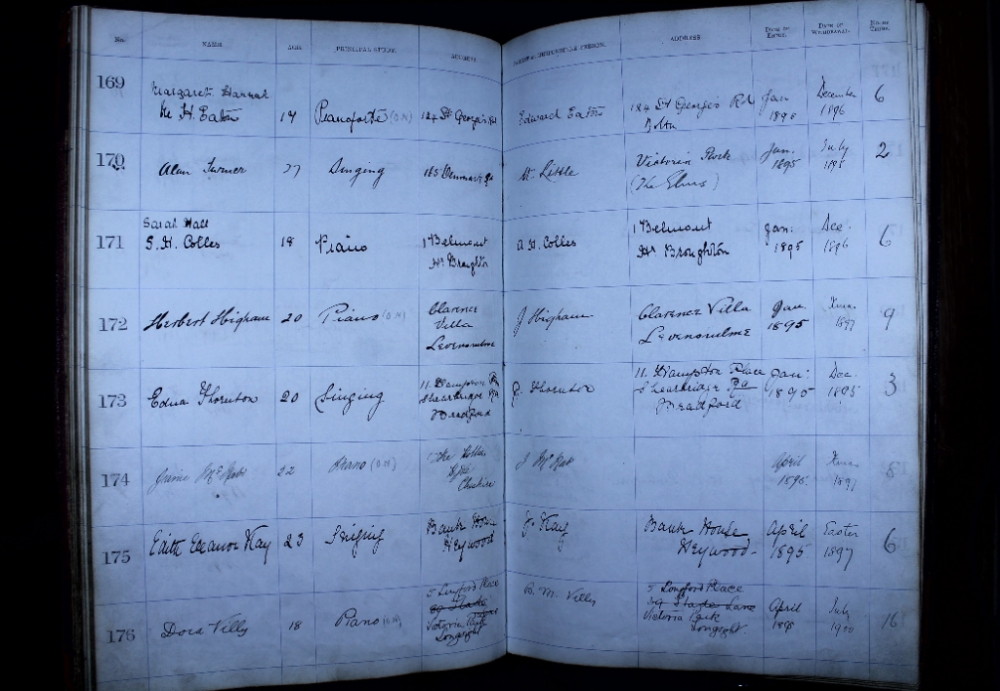 No. NAME. AGE. PRINCIPAL STUDY. ADDRESS. ADDRESS. DATE OF ENTRY. DATE OF WITHDRAWAL. NO. OF TERMS.
169 Margaret Hannah
Mc H. Eaton 17 Pianoforte (O.N) 124 St George's Rd Edward Eaton 124 St George's Rd Bolton Jan 1895 December 1896 6
170 Alan Turner 27 Singing 165 Denmark Rd Little Victoria Park (The Elms) Jan. 1895 July 1895 2
171 Sarah Hall
S. H. Colles 18 Piano 1 Belmont Hr Broughton A. H. Colles 1 Belmont Hr Broughton Jan. 1895 Dec. 1896 6
172 Herbert Higham 20 Piano (O.N) Clarence Villa Levenshulme J Higham Clarence Villa Levenshulme Jan 1895 Xmas 1897 9
173 Edna Thornton 20 Singing 11 Hampton Shearbridge Rd Bradford Thornton 11 Hampton Place Shearbridge Rd Bradford Jan. 1895 Dec. 1895 3
174 22 Piano (O.N) The Cheshire April 1895 Xmas 1897 8
175 Edith Eleanor Kay 23 Singing Bank House Heywood Kay Bank House Heywood April 1895 Easter 1897 6
176 Dora Velly 18 Piano (O.N) 5 Longford Place Victoria Park Longsight M. Velly 5 Longford Place Slade Lane Victoria Park Longsight April 1895 July 1900 16